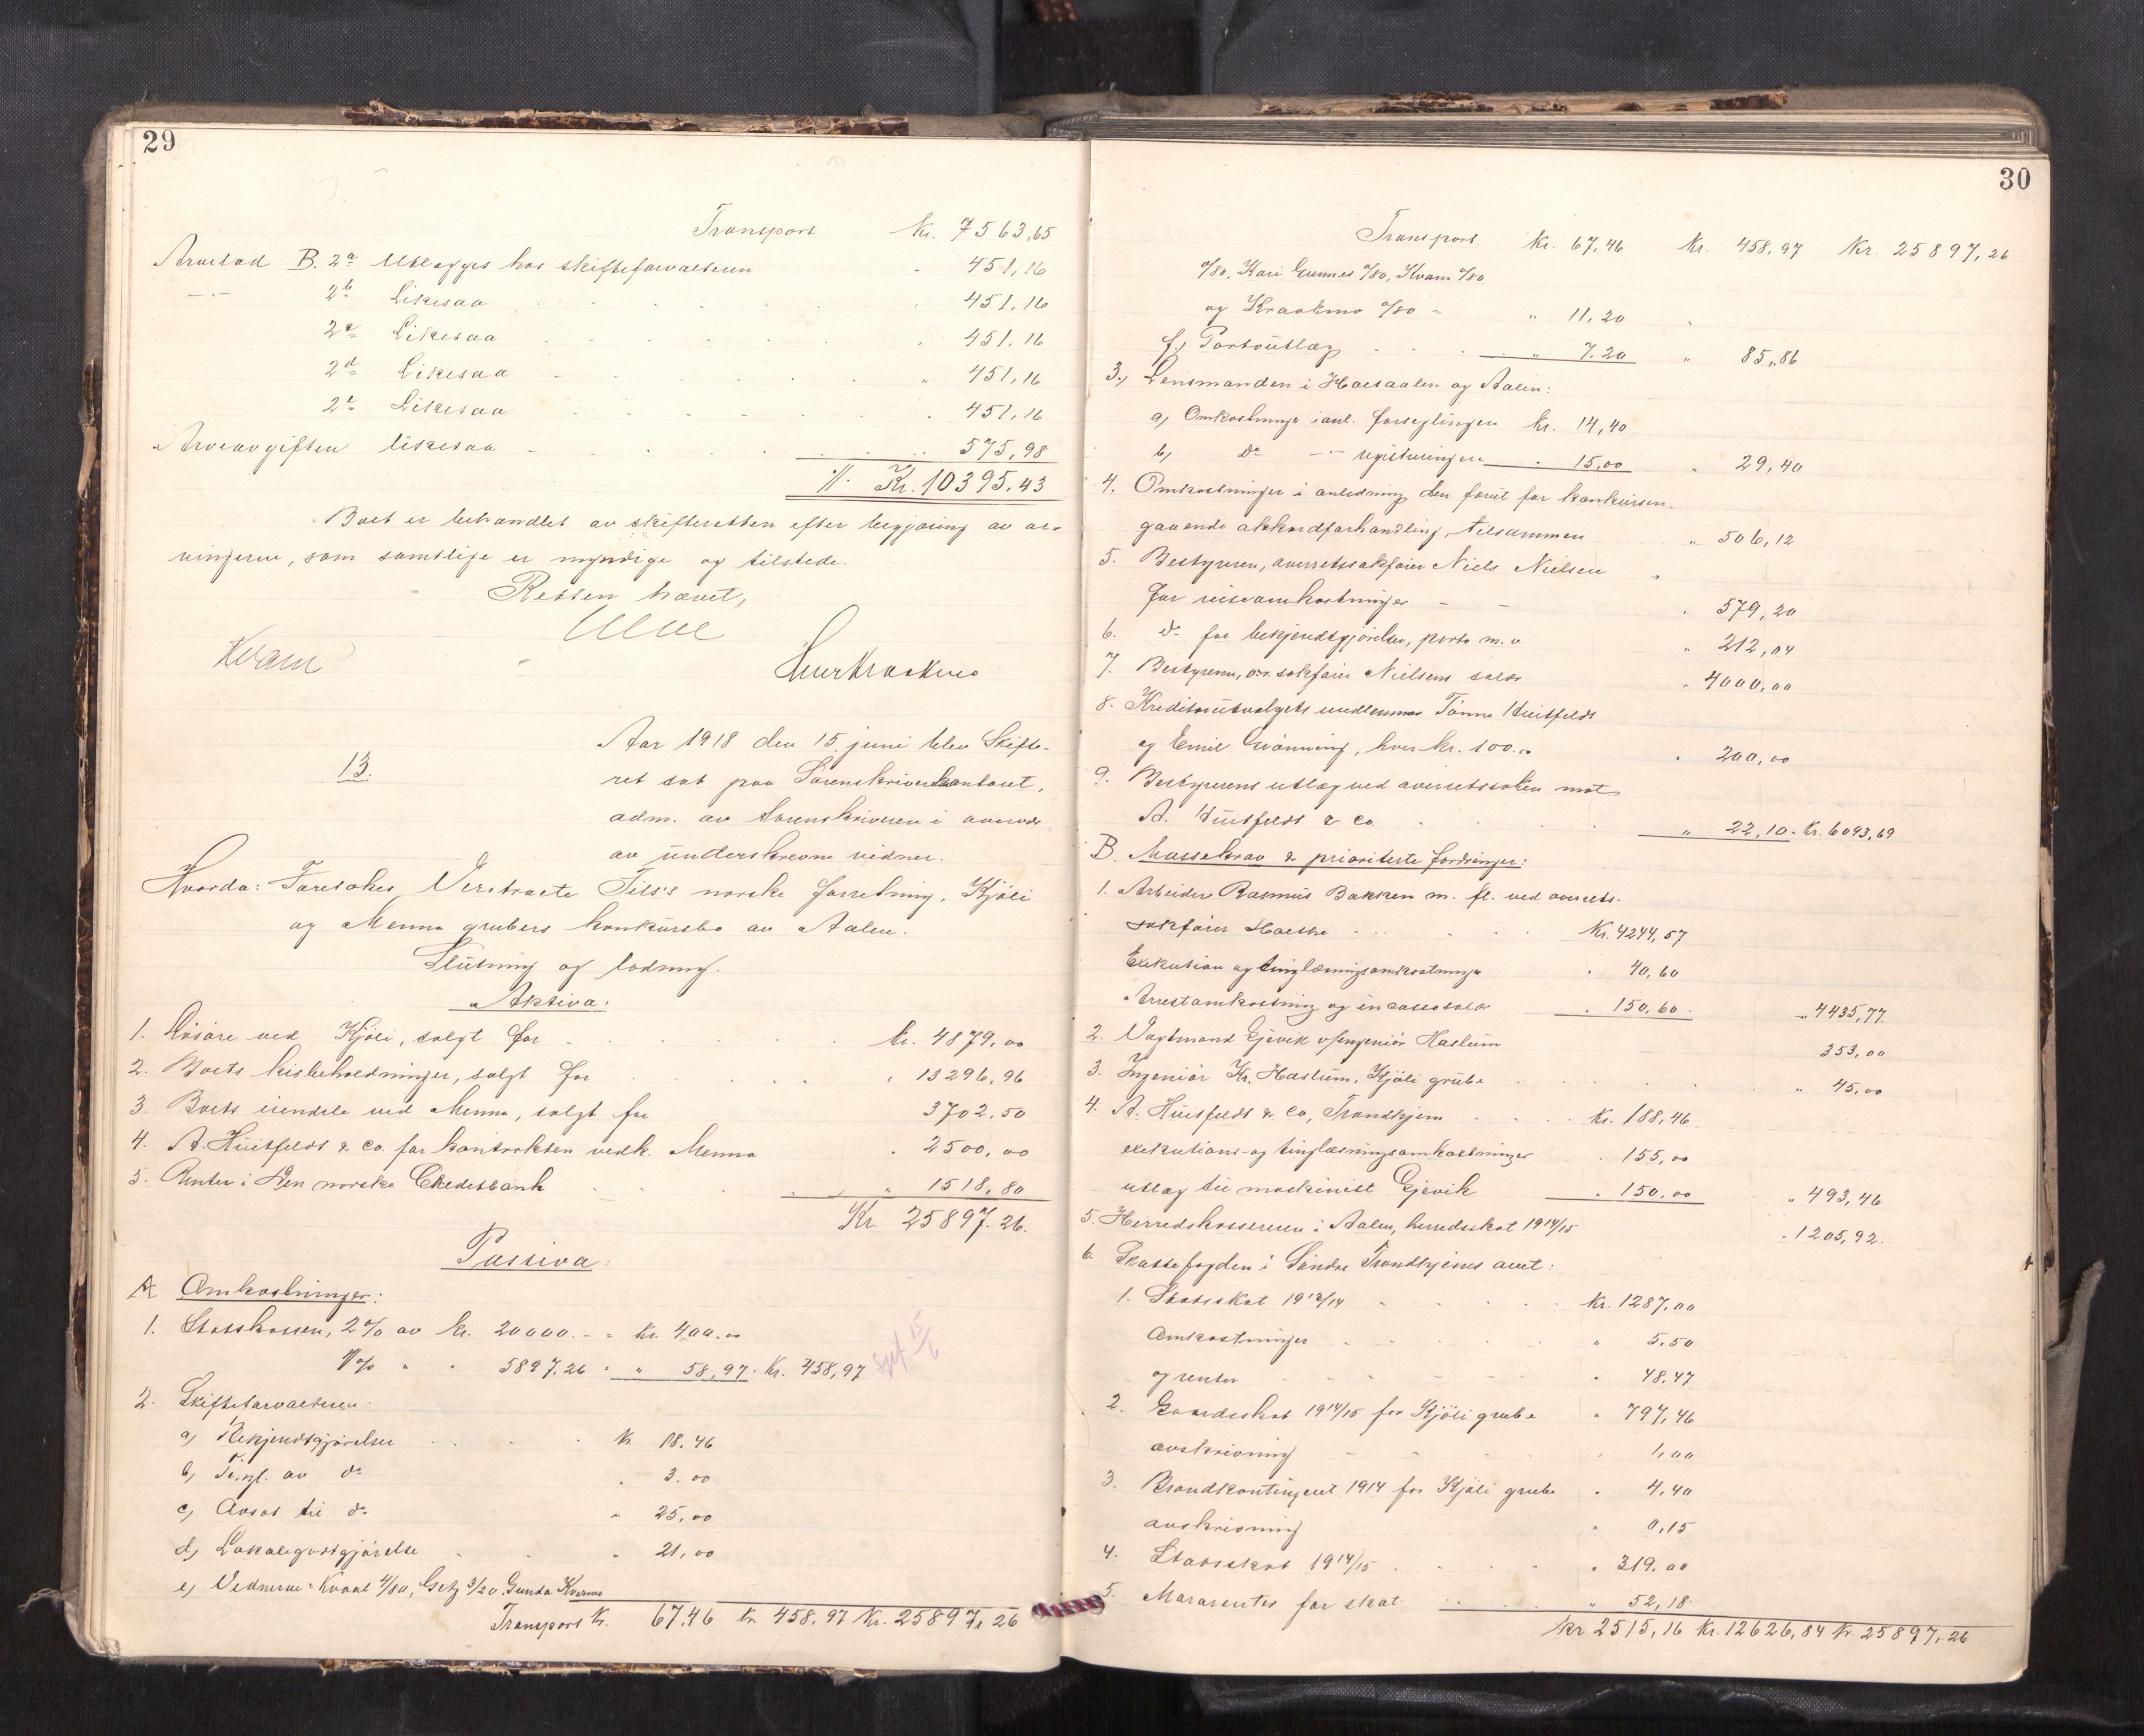 29
Transport Kr. 7563,65
Arvelod B. 2a Utlægges hos skifteforvalteren " 451,16
—"— 2b Likesaa " 451,16
2c Likesaa " 451,16
2d Likesaa " 451,16
2e Likesaa " 451,16
Arveavgiften likesaa " 575,98
Kr. 10395,43
Boet er behandlet av skifteretten efter begjæring av ar-
vingerne, som samtlige er myndige og tilstede.
Retten hævet,
Kvam
13.
Aar 1918 den 15 juni blev Skifte-
ret sat paa Sorenskriverkontoret,
adm. av sorenskriveren i overvær
av underskrevne vidner.
Hvorda: Verstraete Fils's norske forretning, Kjöli
og Menna grubers konkursbo av Aalen.
Slutning og lodning.
Aktiva:
1. Lösöre ved Kjöli, solgt for kr. 4879,00
2. Boets kisbeholdninger, solgt for " 13296,96
3. Boets eiendele ved Menna, solgt for 3702,50
4. A. Huitfeldt & Co. for kontrakten vedk. Menna " 2500,00
5. Renter i Den norske Creditbank " 1518,80
Kr. 25897.26.
Passiva:
A Omkostninger:
1. Statskassen, 2% av kr. 20000.- = Kr. 400.00
1% " " 5897.26 = " 58,97 = Kr. 458,97
15/6
2. Skifteforvalteren:
a) Bekjendtgjörelser Kr. 18.46
b) Tingl. av do " 3.00
c) Avsat til do " 25,00
d) Lokalegodtgjörelse " 21,00
e) Vidnerne: Kvaal 4/80, Getz 3/20 Gunda Kvernmo
Transport Kr. 67,46 kr. 458,97 Kr. 25897,26
30
Transport Kr. 67,46 Kr. 458,97 Kr. 25897,26
0/80, Kari Gunnes 0/80, Kvam 0/80
og Kraakmo 0/80 = " 11,20
f) Portoutlæg " 7.20 " 85,86
3., Lensmanden i Holtaalen og Aalen:
a) Omkostninger i anl. forseglingen kr. 14,40
b) do —"— registreringen " 15,00 " 29,40
4. Omkostninger i anledning den forut for konkursen
gaaende akkordforhandling, tilsammen " 506,12
5. Bestyreren, overretssakförer Niels Nielsen
for reiseomkostninger " 579,20
6. do for bekjendtgjörelser, porto m.v. " 212,04
7. Bestyreren, o.r. sakförer Nielsens salær " 4000,00
8. Kreditorutvalgets medlemmer Tönne Huitfeldt
og Emil Grönning, hver kr. 100.00 " 200,00
9. Bestyrerens utlæg ved overretssaken mot
A. Huitfeldt & Co. " 22,10 = Kr. 6093,69
B. Massekrav & prioriterte fordringer:
1. Arbeider Rasmus Bakken m. fl. ved overrets-
sakförer Kr. 4244,57
Exekution og tinglæsningsomkostninger " 40,60
Arrestomkostning og incassosalær " 150,60 " 4435,77.
2. Vagtmand Gjevik v/Ingeniör Haslum 353,00
3. Ingeniör Kr. Haslum, Kjöli grube " 45,00
4. A. Huitfeldt & Co, Trondhjem Kr. 188,46
exekutions- og tinglæsningsomkostninger " 155,00
utlæg til maskinist Gjevik " 150,00 " 493,46
5. Herredskassereren i Aalen, herredsskat 1914/15 " 1205,92.
6. Skattefogden i Söndre Trondhjems amt:
1. Statsskat 1913/14 Kr. 1287,00
Omkostninger " 5.50
og renter " 48,47
2. Eiendomsskat 1914/15 for Kjöli grube " 797,46
avskrivning " 1,00
3. Brandkontingent 1914 for Kjöli grube " 4,40
avskrivning " 0,15
4. Statsskat 1914/15 " 319,00
5. Morarenter for skat " 52,18
Kr. 2515,16 Kr. 12626,84 Kr. 25897,26